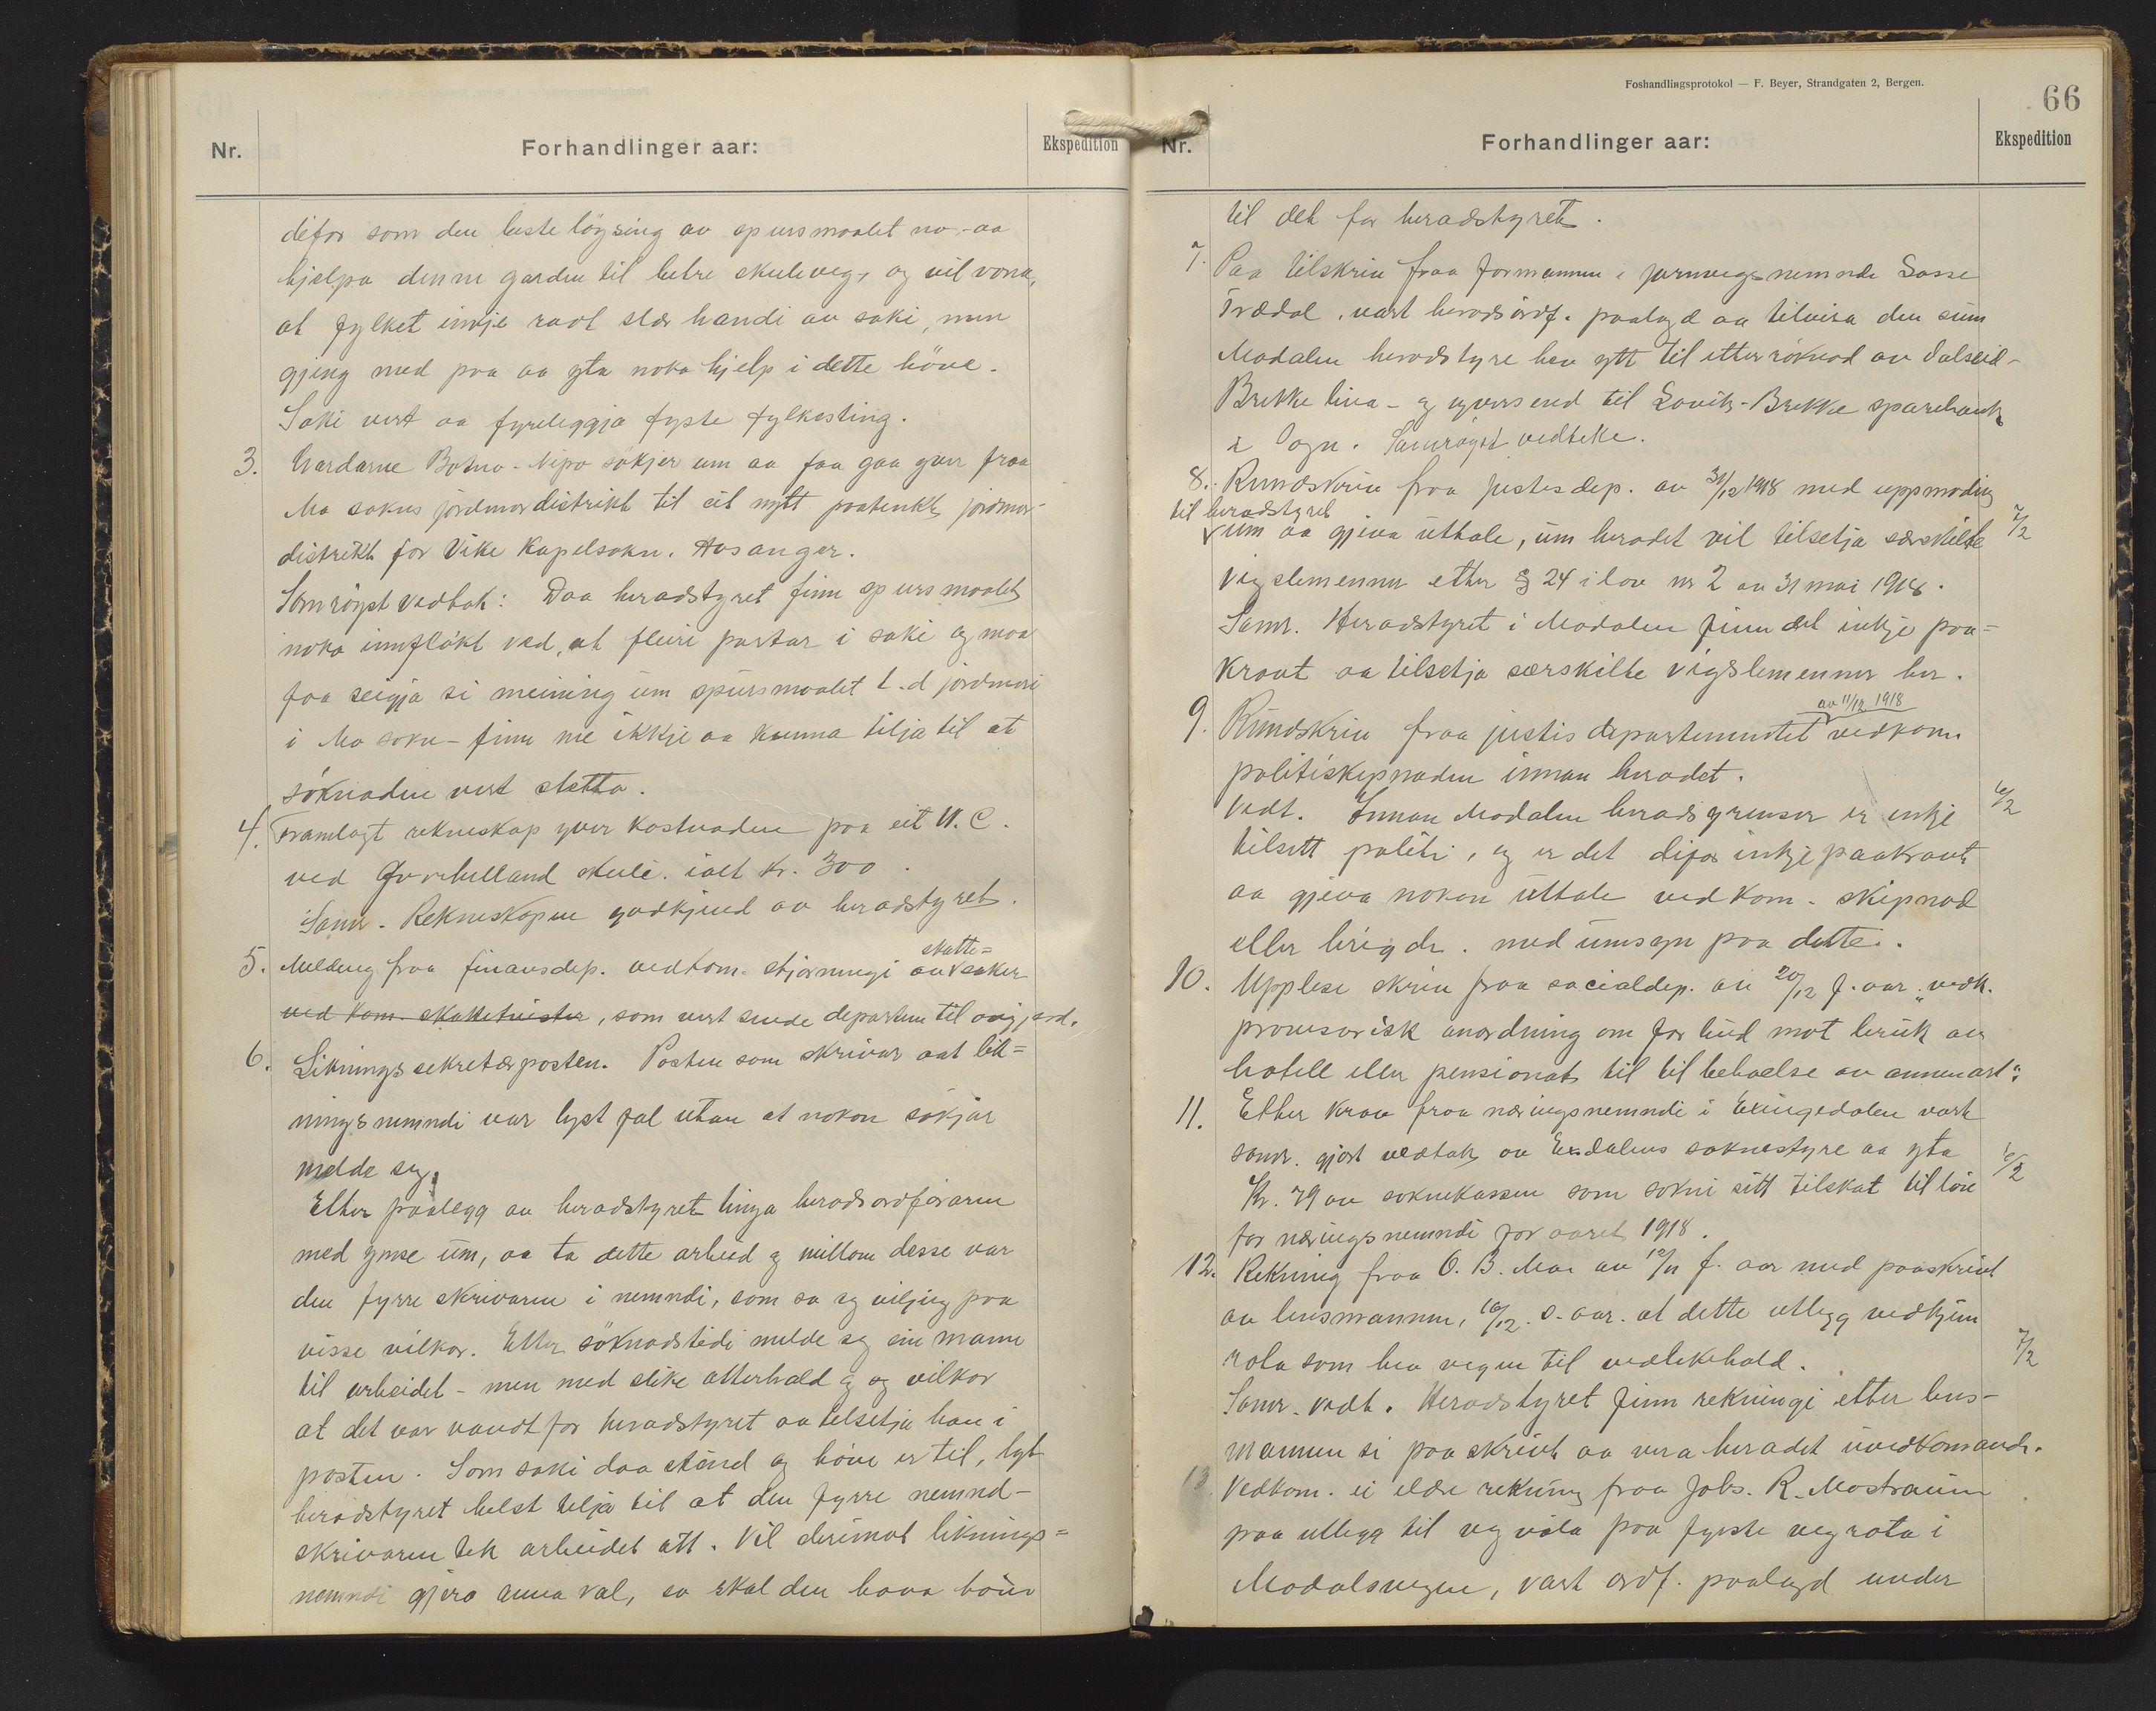 Nr.
Forhandlinger aar:
Ekspedition
difor som den beste löysing av spursmaalet no, aa
hjelpa denne garden til betre skuleveg, og vil vona,
at fylket inkje radt slær handi av saki, men
gjeng med paa aa yta noko hjelp i dette höve.
Saki vert aa fyreleggja fyste fylkesting.
3. Gardarne Botna-Nipo sökjer um aa faa gaa yver fraa
Mo sokns jordmordistrikt til eit nytt paatenkt jordmor-
distrikt for Vike Kapelsokn. Hosanger.
Samröyst vedtak: Daa heradstyret finn spursmaalet
noko innflökt ved, at fleire partar i saki og maa
faa seigja si meining um spursmaalet t.d jordmori
i Mo sokn - finn me ikkje aa kunna tilja til at
söknaden vert stetta.
4. Framlagt rekneskap yver kostnaden paa eit W.C.
ved Övrehelland skule. ialt kr. 300.
Samr. Rekneskapen godkjend av heradstyret.
5. Melding fraa finansdep. vedkom. stjorningi av skatte=
saker
ved kom. skattetvister, som vert sende departem til avgjerd.
6. Likningssekretærposten. Posten som skrivar aat lik=
ningsnemndi var lyst fal utan at nokon sökjar
melde seg.
Etter paalegg av heradstyret tinga heradsordföraren
med ymse um, aa ta dette arbeid og millom desse var
den fyrre skrivaren i nemndi, som sa seg viljug paa
visse vilkor. Etter söknadstidi melde seg ein mann
til arbeidet - men med slike atterhald og og vilkor
at det var vandt for heradstyret aa tilsetja han i
posten. Som saki daa stend og höve er til, lyt
heradstyret helst tilja til at den fyrre nemnd-
skrivaren tek arbeidet att. Vil derimot liknings=
nemndi gjera anna val, so skal den hava höve
Foshandlingsprotokol — F. Beyer, Strandgaten 2, Bergen.
66
Nr.
Forhandlinger aar:
Ekspedition
til det for heradstyret.
7. Paa tilskriv fraa formannen i jarnvegsnemnde Lasse
Trædal, vart heradsordf. paalagd aa tilvisa den sum
Modalen heradstyre hev ytt til etterröknad av Dalseid-
Brekke lina - og yversend til Lavik-Brekke sparebank
i Sogn. Samröyst vedteke.
8. Rundskriv fraa justisdep. av 31/12 1918 med uppmoding
til heradstyret
um aa gjeva uttale, um heradet vil tilsetja særskilte 7/2
vigslemenner etter § 24 i lov nr 2 av 31 mai 1918.
Samr. Heradstyret i Modalen finn det inkje paa=
kravt aa tilsetja særskilte vigslemenner her.
av 11/12 1918
9. Rundskriv fraa justisdepartementet vedkom.
politiskipnaden innan heradet.
Vedt. Innan Modalen heradsgrenser er inkje 6/2
tilsett politi, og er det difor inkje paakravt
aa gjeva nokon uttale vedkom. skipnad
eller brigde. med umsyn paa dette.
10. Upplese skriv fraa socialdep. av 20/12 f. aar. vedk.
"provisorisk anordning om forbud mot bruk av
hotell eller pensionat til tilbehoelse av annen art".
11. Etter krav fraa næringsnemndi i Exingedalen vart
samr. gjort vedtak av Exdalens soknestyre aa yta 6/2
Kr. 79 av soknekassen som sokni sitt tilskot til lön
for næringsnemndi for aaret 1918.
12. Rekning fraa O. B. Moe av 10/11 f. aar med paaskrivt
av lensmannen, 10/12. s. aar. at dette utlegg vedkjem
rota som hev vegen til vedlikehald. 7/2
Samr. vedt. Heradstyret finn rekningi etter lens-
mannen si paaskrivt aa vera heradet uvedkomande.
13. Vedkom. ei eldre rekning fraa Johs. R. Mostraum
paa utlegg til veg vöta paa fyrste vegrota i
Modalsvegen, vart ordf. paalagd under